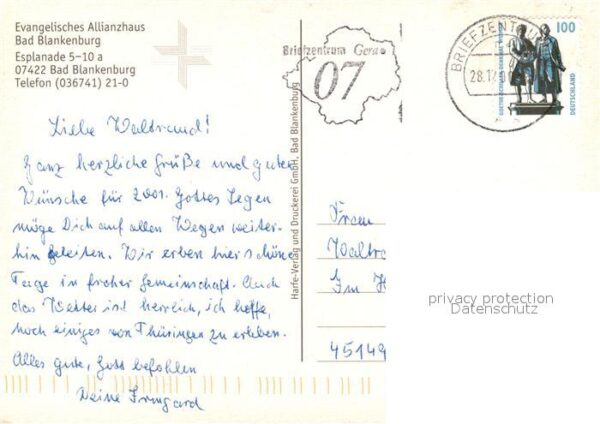 Evangelisches Allianzhaus
Bad Blankenburg
Esplanade 5–10 a
07422 Bad Blankenburg
Telefon (036741) 21-0
Liebe Waltraud!
Ganz herzliche Grüße und guten
Wünsche für 2001. Gottes Segen
möge Dich auf allen Wegen weiter-
hin geleiten. Wir erleben hier schöne
Tage in froher Gemeinschaft. Auch
das Wetter ist herrlich, ich hoffe,
noch einiges von Thüringen zu erleben.
Alles gute, Gott befohlen
Deine Irmgard
Harfe-Verlag und Druckerei GmbH, Bad Blankenburg
Briefzentrum Gera
07
BRIEFZENT
28.12
100
DEUTSCHLAND
Frau
Waltra
Im H
45149
privacy protection
Datenschutz